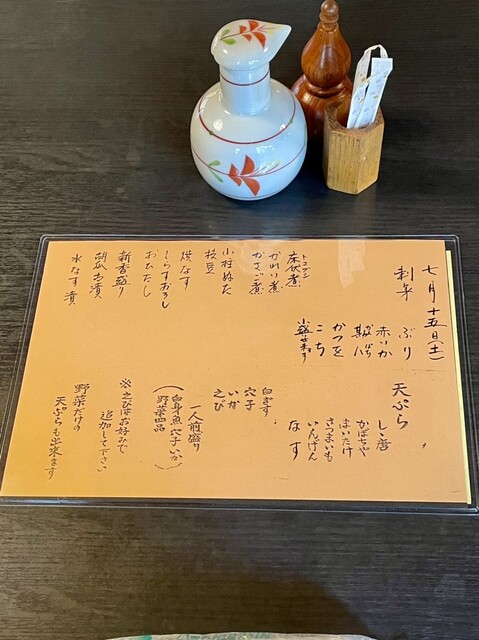 七月十五日(土)
刺身
ぶり
赤いか
かつを
こち
小盛出来ます
トコブシ
床伏煮
かれい煮
かさご煮
小柱ぬた
枝豆
焼なす
しらすおろし
おひたし
新香盛り
胡瓜お漬
水なす漬
天ぷら
しゝ唐
かぼちゃ
まいたけ
さつまいも
いんげん
なす
白きす
穴子
いか
えび
一人前盛り
(白身魚 穴子 いか
野菜四品)
※えびはお好みで
追加して下さい
野菜だけの
天ぷらも出来ます